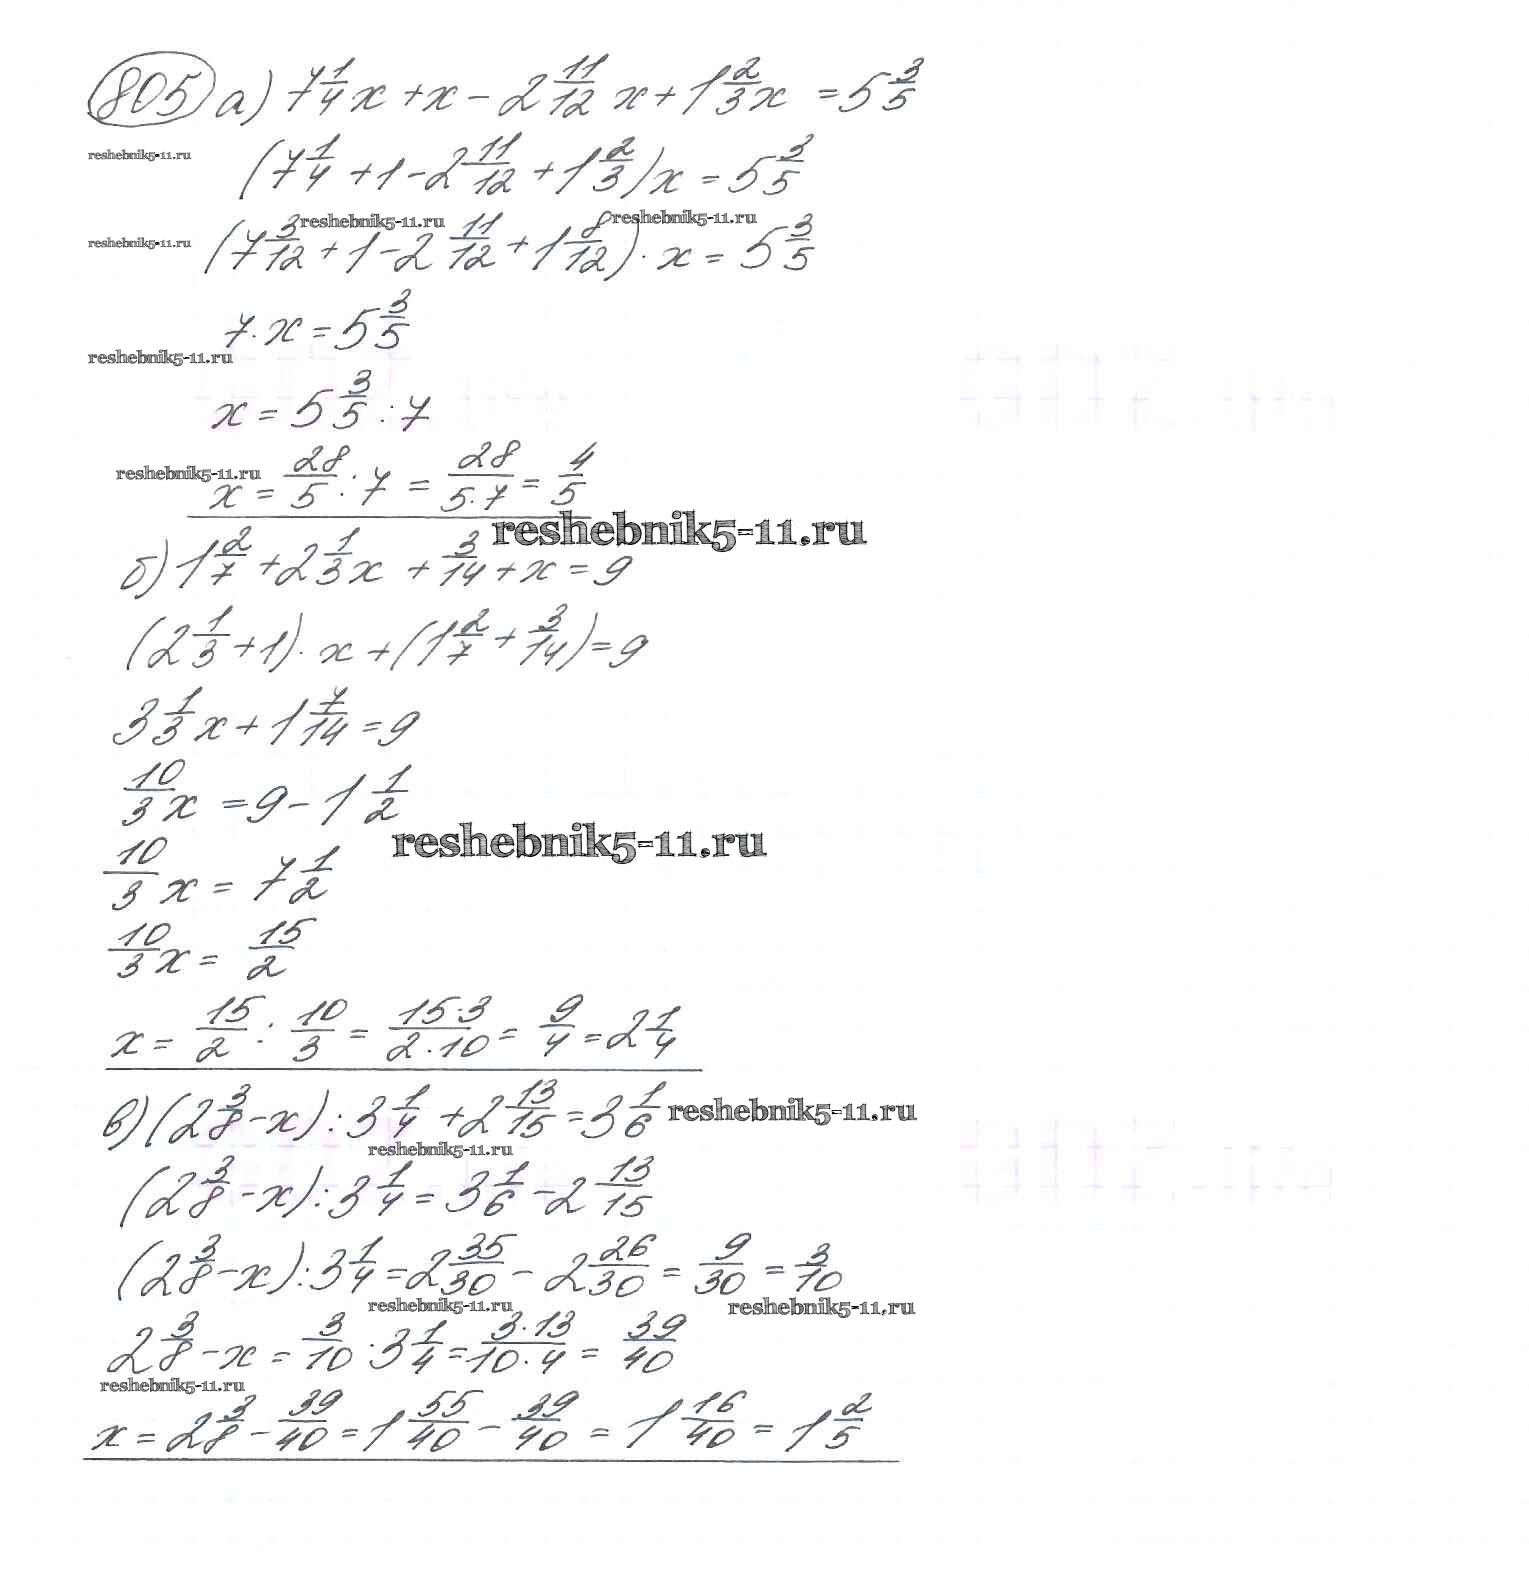 805 а) 7 1/4 x + x - 2 11/12 x + 1 2/3 x = 5 3/5
reshebnik5-11.ru (7 1/4 + 1 - 2 11/12 + 1 2/3) x = 5 3/5
reshebnik5-11.ru reshebnik5-11.ru
reshebnik5-11.ru (7 3/12 + 1 - 2 11/12 + 1 8/12) · x = 5 3/5
7 · x = 5 3/5
reshebnik5-11.ru
x = 5 3/5 : 7
reshebnik5-11.ru x = 28/5 : 7 = 28/(5·7) = 4/5
reshebnik5-11.ru
б) 1 2/7 + 2 1/3 x + 3/14 + x = 9
(2 1/3 + 1) · x + (1 2/7 + 3/14) = 9
3 1/3 x + 1 7/14 = 9
10/3 x = 9 - 1 1/2
reshebnik5-11.ru
10/3 x = 7 1/2
10/3 x = 15/2
x = 15/2 : 10/3 = (15·3)/(2·10) = 9/4 = 2 1/4
в) (2 3/8 - x) : 3 1/4 + 2 13/15 = 3 1/6 reshebnik5-11.ru
reshebnik5-11.ru
(2 3/8 - x) : 3 1/4 = 3 1/6 - 2 13/15
(2 3/8 - x) : 3 1/4 = 2 35/30 - 2 26/30 = 9/30 = 3/10
reshebnik5-11.ru reshebnik5-11.ru
2 3/8 - x = 3/10 · 3 1/4 = (3·13)/(10·4) = 39/40
reshebnik5-11.ru
x = 2 3/8 - 39/40 = 1 55/40 - 39/40 = 1 16/40 = 1 2/5